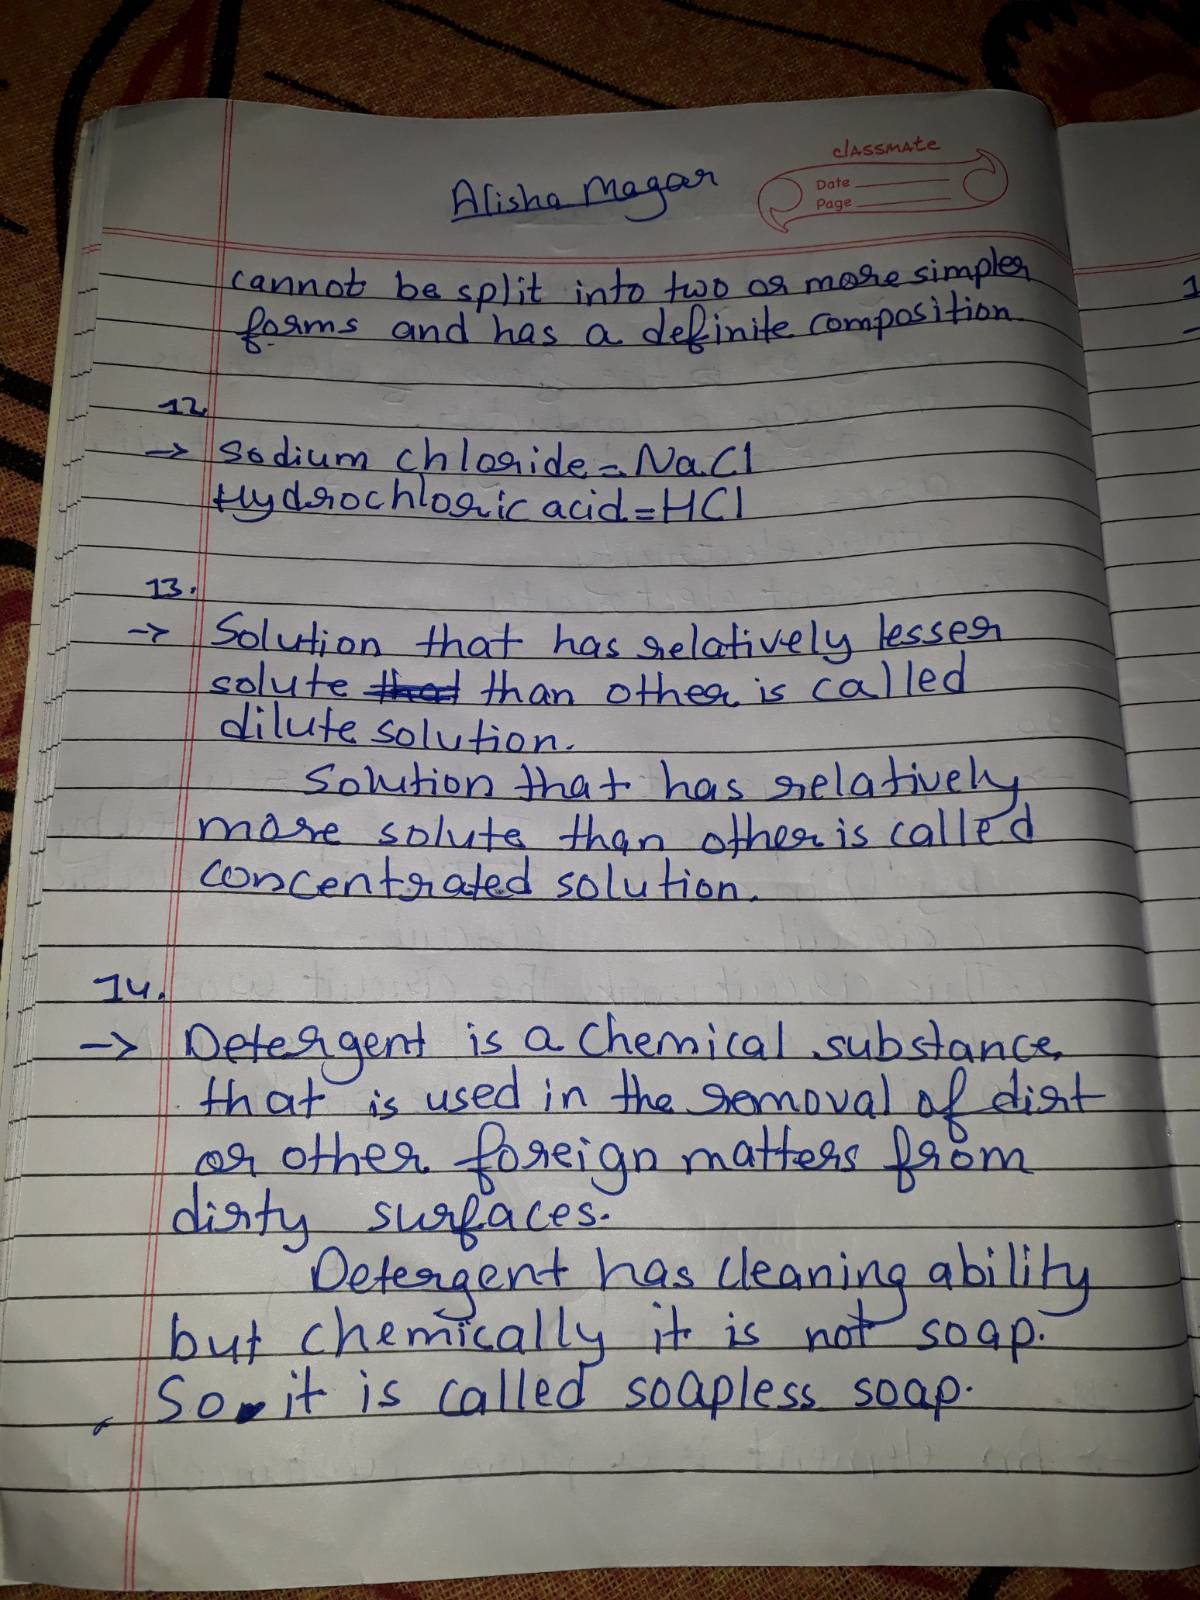 Alisha Magar
classmate
Date
Page
cannot be split into two or more simpler
forms and has a definite composition.
12.
→ Sodium chloride = NaCl
Hydrochloric acid = HCl
13.
→ Solution that has relatively lesser
solute that than other is called
dilute solution.
Solution that has relatively
more solute than other is called
concentrated solution.
14.
→ Detergent is a chemical substance
that is used in the removal of dirt
or other foreign matters from
dirty surfaces.
Detergent has cleaning ability
but chemically it is not soap.
So it is called soapless soap.